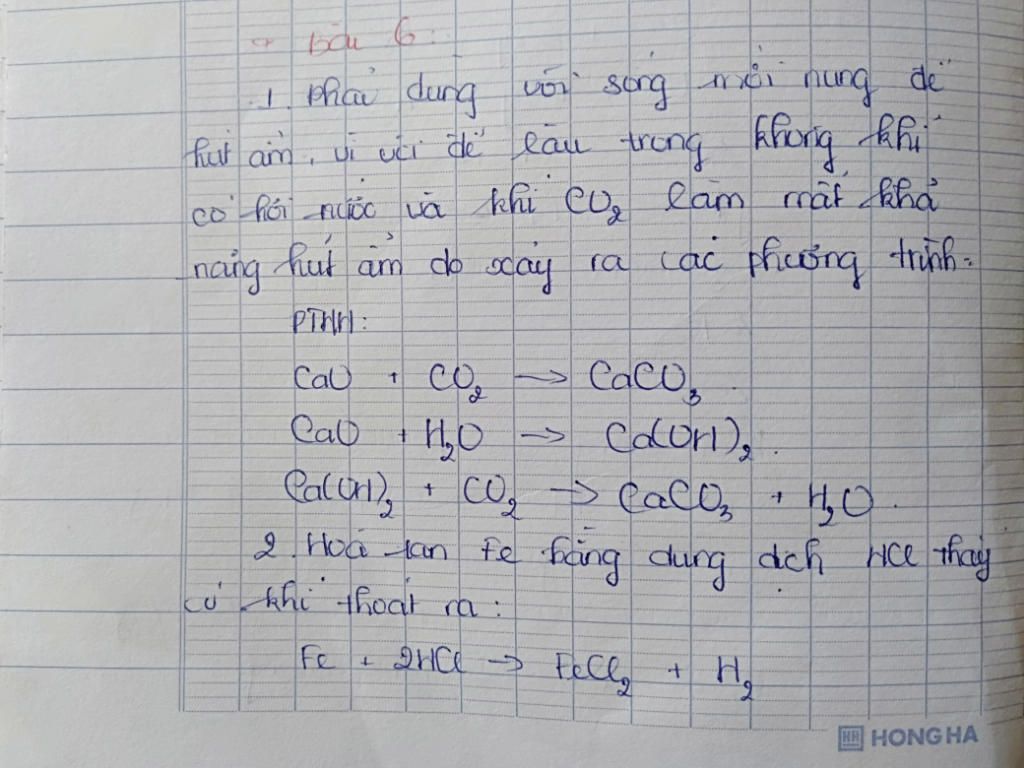 + Bài 6:
1. Phải dùng vôi sống mới nung để
hút ẩm, vì vôi để lâu trong không khí
có hơi nước và khí CO₂ làm mất khả
năng hút ẩm do xảy ra các phương trình:
PTHH:
CaO + CO₂ → CaCO₃.
CaO + H₂O → Ca(OH)₂.
Ca(OH)₂ + CO₂ → CaCO₃ + H₂O.
2. Hoà tan Fe bằng dung dịch HCl thấy
có khí thoát ra:
Fe + 2HCl → FeCl₂ + H₂
HH HONG HA